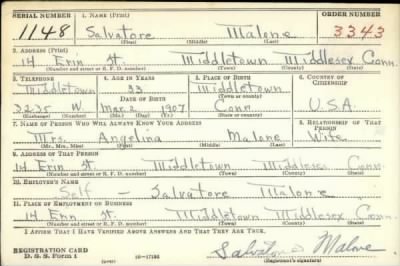 SERIAL NUMBER 1. NAME (Print) ORDER NUMBER
1148 Salvatore Malone 3343
(First) (Middle) (Last)
2. ADDRESS (Print)
14 Erin St. Middletown Middlesex Conn.
(Number and street or R. F. D. number) (Town) (County) (State)
3. TELEPHONE 4. AGE IN YEARS 5. PLACE OF BIRTH 6. COUNTRY OF CITIZENSHIP
Middletown 33 Middletown
DATE OF BIRTH (Town or county)
3235 W Mar. 2 1907 Conn U.S.A.
(Exchange) (Number) (Mo.) (Day) (Yr.) (State or country)
7. NAME OF PERSON WHO WILL ALWAYS KNOW YOUR ADDRESS 8. RELATIONSHIP OF THAT PERSON
Mrs. Angelina Malone Wife
(Mr., Mrs., Miss) (First) (Middle) (Last)
9. ADDRESS OF THAT PERSON
14 Erin St. Middletown Middlesex Conn.
(Number and street or R. F. D. number) (Town) (County) (State)
10. EMPLOYER'S NAME
Self Salvatore Malone
11. PLACE OF EMPLOYMENT OR BUSINESS
14 Erin St. Middletown Middlesex Conn.
(Number and street or R. F. D. number) (Town) (County) (State)
I AFFIRM THAT I HAVE VERIFIED ABOVE ANSWERS AND THAT THEY ARE TRUE.
REGISTRATION CARD
D. S. S. Form 1 Salvatore Malone
(Registrant's signature)